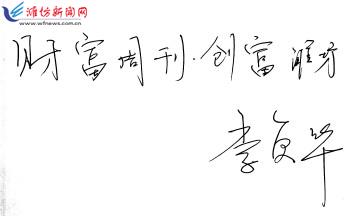 潍坊新闻网
www.wfnews.com.cn
财富周刊·创富潍坊